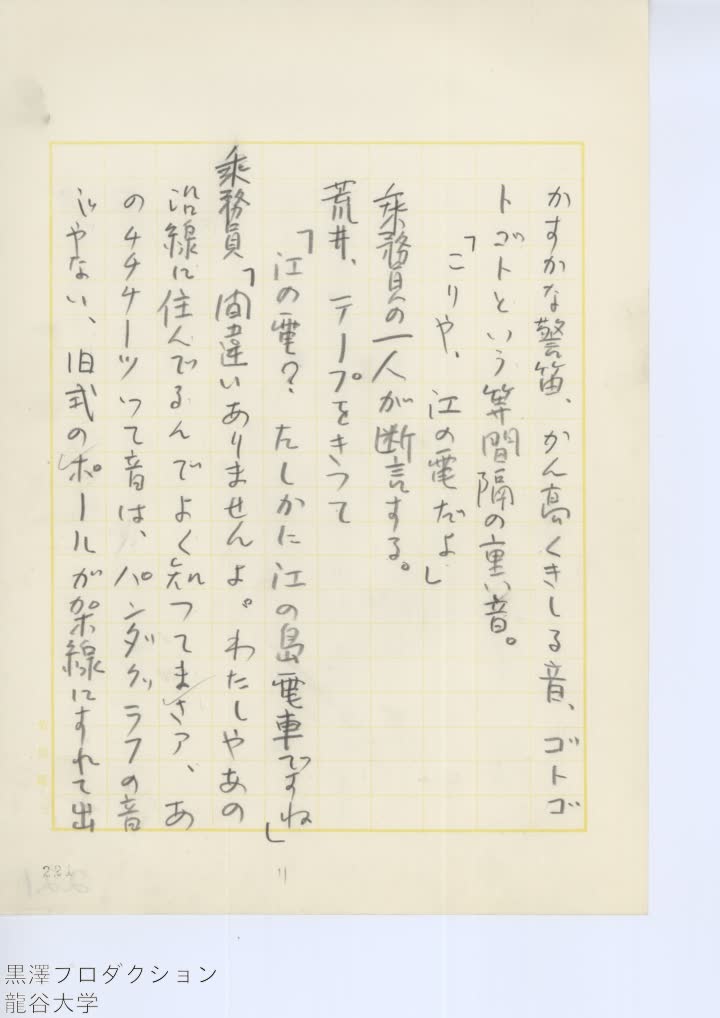 かすかな警笛、かん高くきしる音、ゴトゴ
トゴトという等間隔の重い音。
「こりや、江の電だよ」
乗務員の一人が断言する。
荒井、テープをきつて
「江の電？たしかに江の島電車ですね」
乗務員、「間違いありませんよ。わたしやあの
沿線に住んでるんでよく知つてまさア、あ
のチチチーツつて音は、パンダグラフの音
じやない、旧式のポールが架線にすれて出
11
黒澤プロダクション
龍谷大学